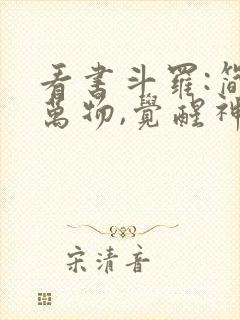 看書斗羅:簡
萬物,覺醒神
宋清音